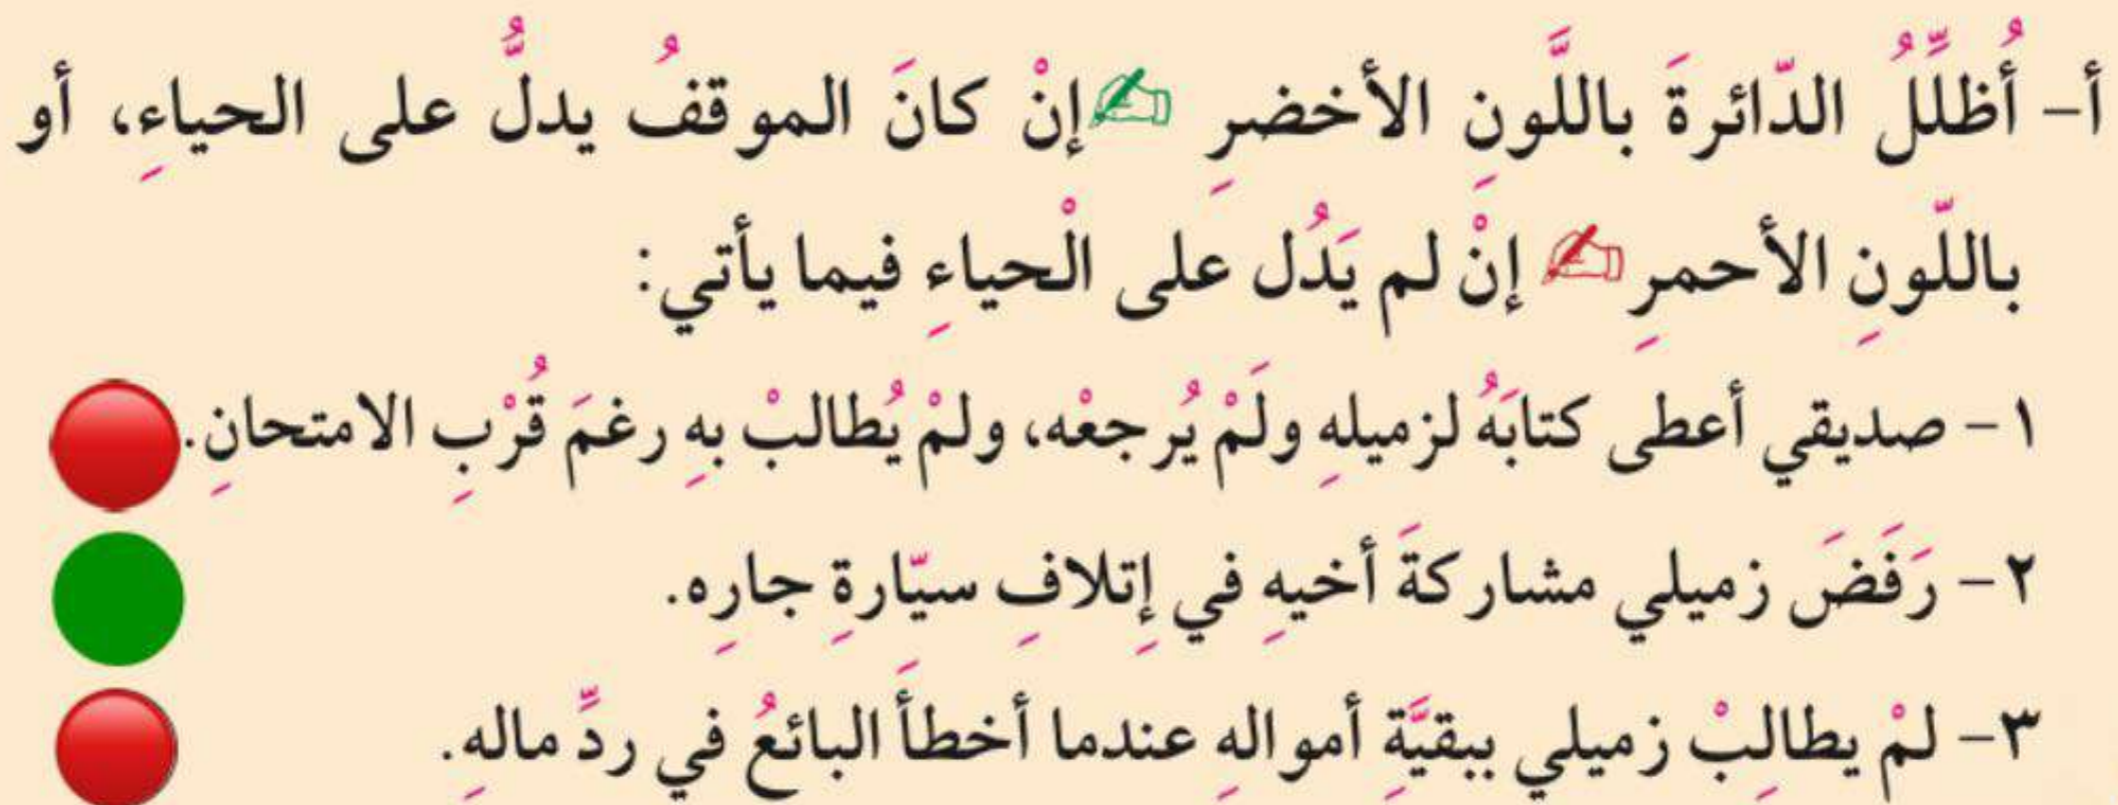 أ- أُظلِّلُ الدّائرةَ باللَّونِ الأخضرِ إنْ كانَ الموقفُ يدلُّ على الحياءِ، أو
باللّونِ الأحمرِ إنْ لم يَدُل على الْحياءِ فيما يأتي:
١- صديقي أعطى كتابَهُ لزميلهِ ولَمْ يُرجعْه، ولمْ يُطالبْ بهِ رغمَ قُرْبِ الامتحانِ.
٢- رَفَضَ زميلي مشاركةَ أخيهِ في إِتلافِ سيّارةِ جارِه.
٣- لمْ يطالِبْ زميلي ببقيَّةِ أموالهِ عندما أخطأَ البائعُ في ردِّ مالهِ.